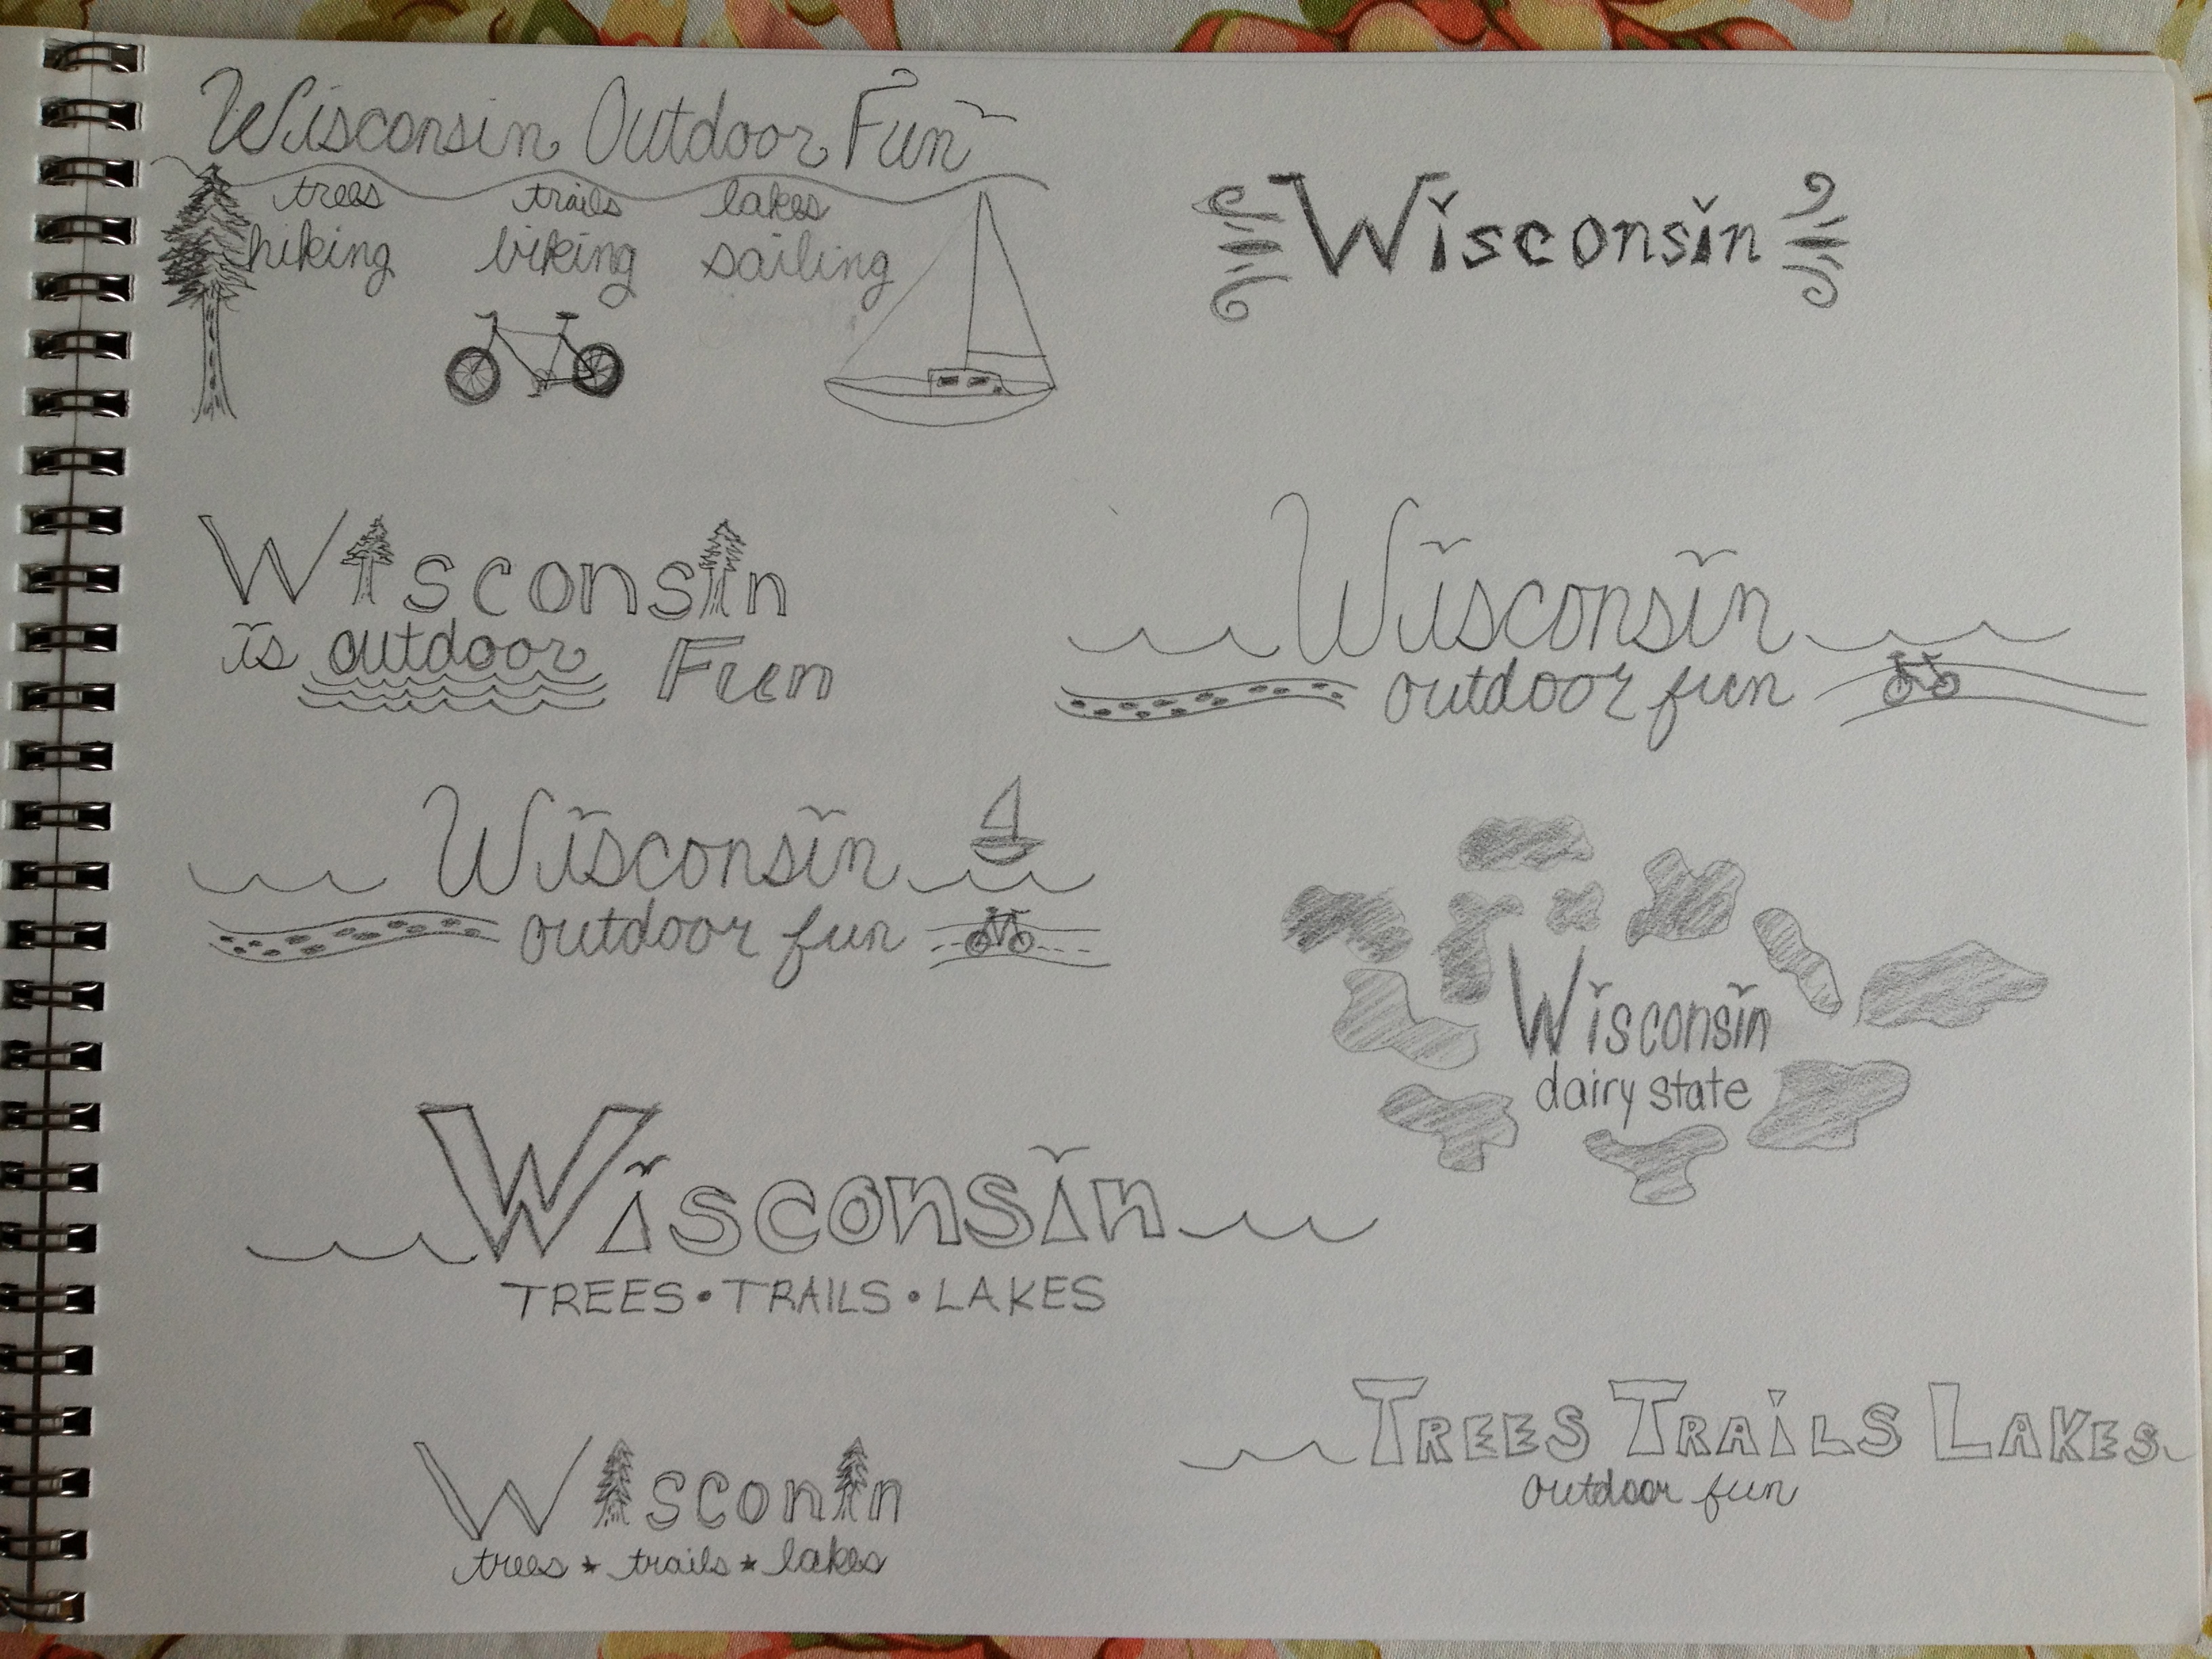 Wisconsin Outdoor Fun
trees trails lakes
hiking biking sailing
Wisconsin
Wisconsin
is outdoor Fun
Wisconsin
outdoor fun
Wisconsin
outdoor fun
Wisconsin
dairy state
Wisconsin
TREES • TRAILS • LAKES
Wisconin
trees ★ trails ★ lakes
TREES TRAiLS LAKES
outdoor fun